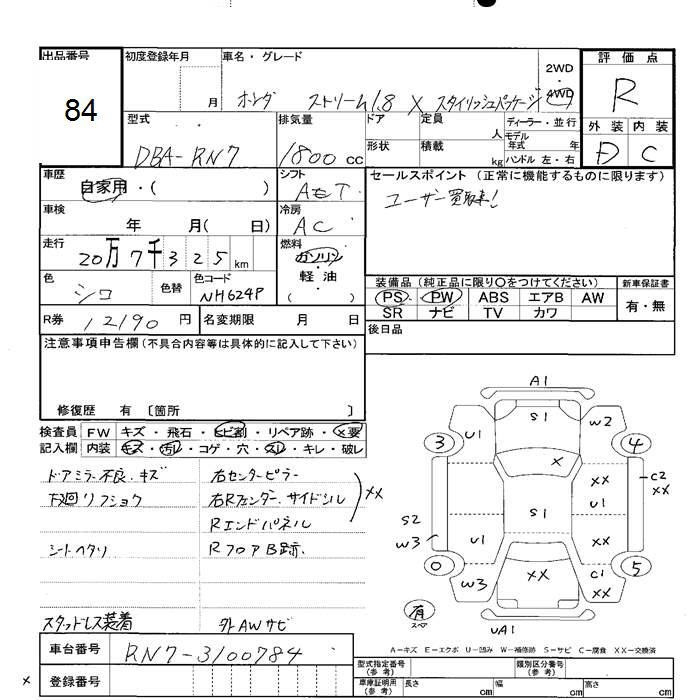 出品番号
84
初度登録年月
月
車名・グレード
ホンダ ストリーム1.8 X スタイリッシュパッケージ
2WD
・
4WD
評価点
R
外装 内装
D C
型式
DBA-RN7
排気量
1800 cc
ドア
形状
定員
人
積載
kg
ディーラー・並行
モデル年式 年
ハンドル 左・右
車歴
自家用・( )
シフト
AET
セールスポイント (正常に機能するものに限ります)
ユーザー買取車!
車検
年 月( 日)
冷房
AC
走行
20万7千325km
燃料
ガソリン
・
軽油
( )
色
シロ
色替
色コード
NH624P
装備品 (純正品に限り○をつけてください)
新車保証書
PS PW ABS エアB AW
SR ナビ TV カワ
有・無
R券 12190 円
名変期限 月 日
後日品
注意事項申告欄(不具合内容等は具体的に記入して下さい)
修復歴 有 〔箇所 〕
検査員記入欄
FW キズ・飛石・ヒビ割・リペア跡・X要
内装 キズ・汚レ・コゲ・穴・スレ・キレ・破レ
ドアミラー不良、キズ
下廻リフショウ
シートヘタリ
スタッドレス装着
右センターピラー
右Rフェンダー、サイドシル XX
Rエンドパネル
RフロアB跡、
外AWサビ
A1
S1
U1
W2
3
4
X
XX
C2
XX
U1
S1
S2
W3
U1
XX
0
5
W3
XX
C1
XX
有
スペア
UA1
A-キズ E-エクボ U-凹み W-補修跡 S-サビ C-腐食 XX-交換済
車台番号
RN7-3100784
x
登録番号
型式指定番号
(参考)
類別区分番号
(参考)
車庫証明用
(参考)
長さ cm
幅 cm
高さ cm